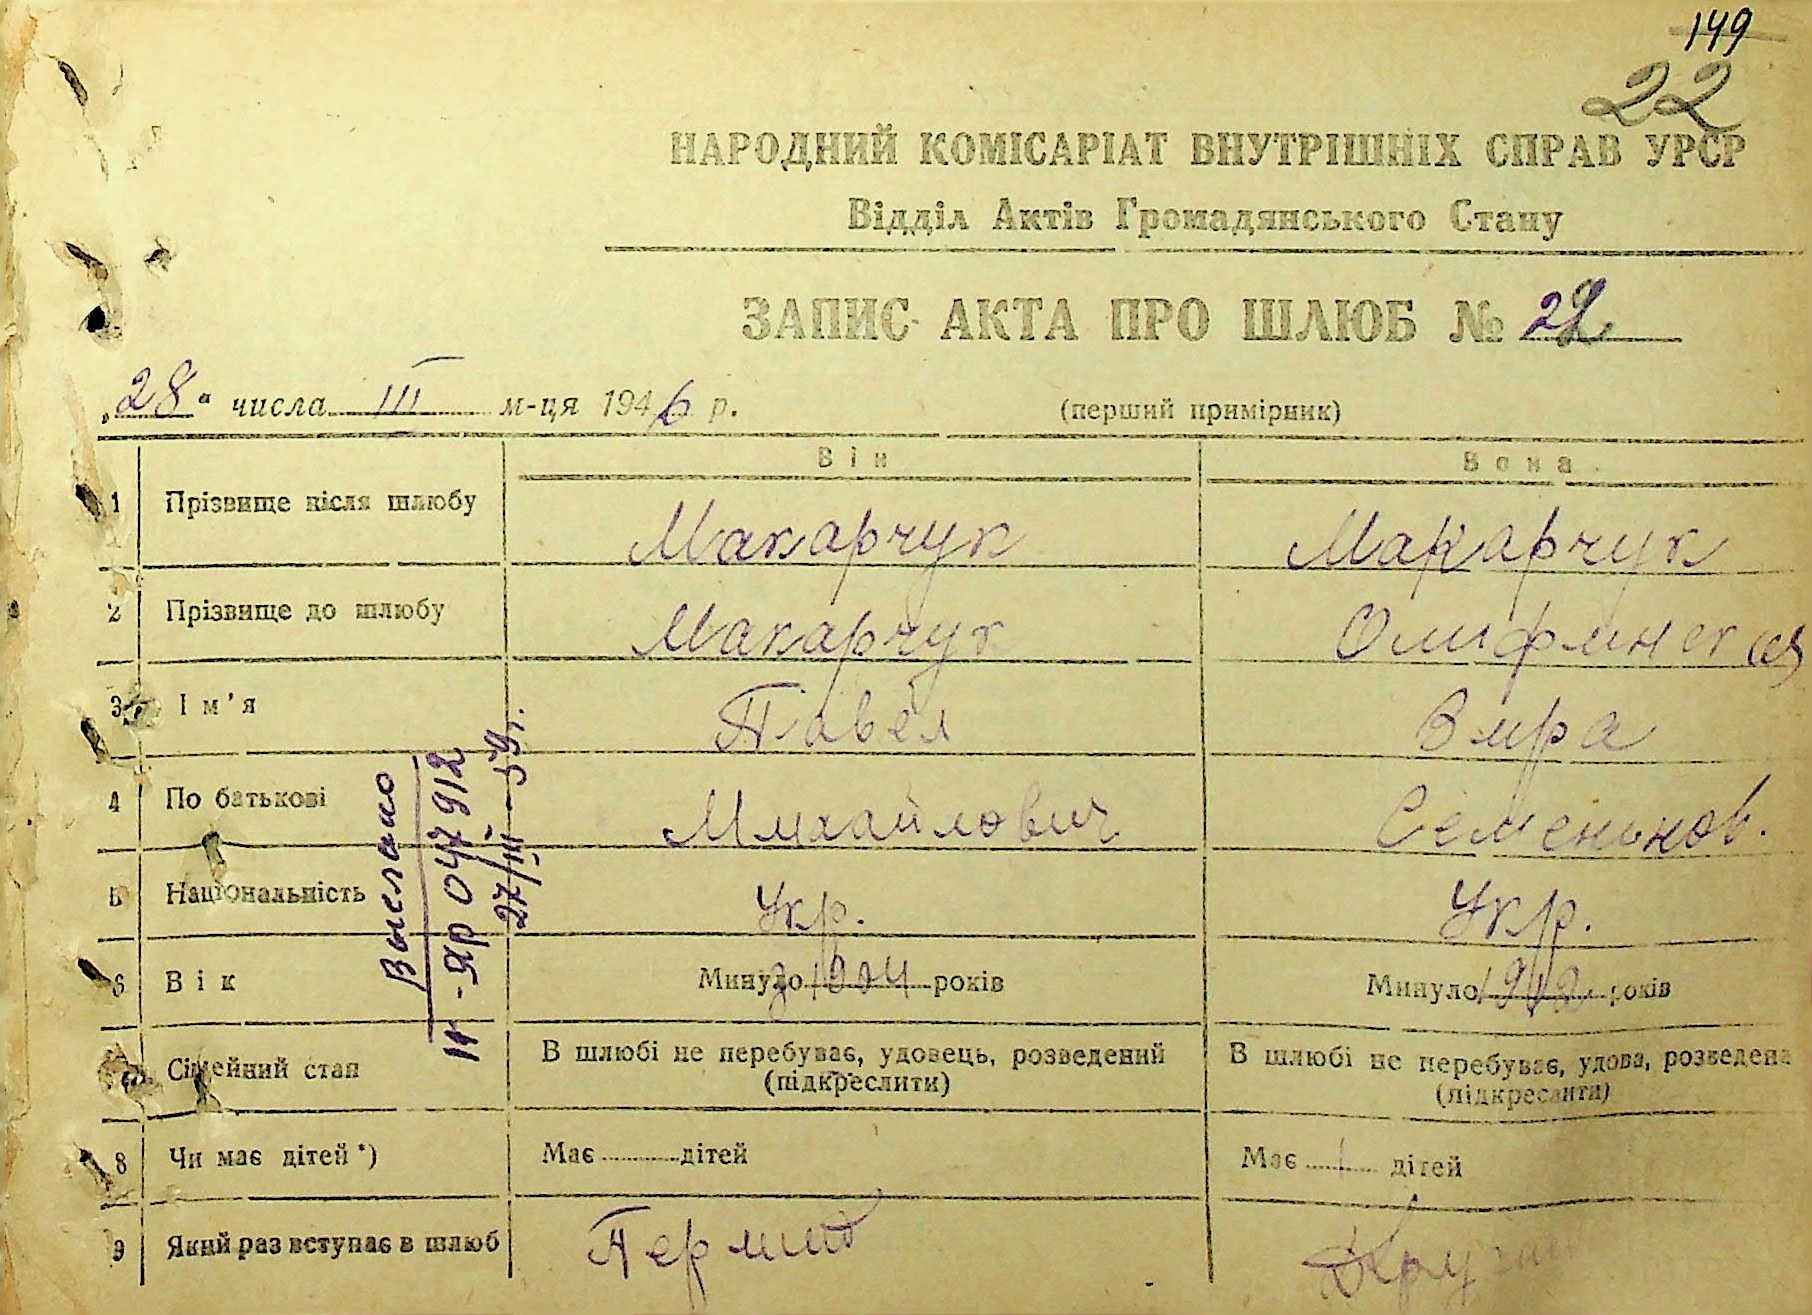 149
22
НАРОДНИЙ КОМІСАРІАТ ВНУТРІШНІХ СПРАВ УРСР
Відділ Актів Громадянського Стану
ЗАПИС АКТА ПРО ШЛЮБ № 22
„28“ числа III м-ця 1946 р. (перший примірник)
Він Вона
1 Прізвище після шлюбу Макарчук Макарчук
2 Прізвище до шлюбу Макарчук
3 Ім'я Павел Вира
4 По батькові Михайлович Семенонов.
5 Національність Укр. Укр.
6 Вік Минуло 1904 років Минуло 1912 років
Сімейний стан В шлюбі не перебуває, удовець, розведений В шлюбі не перебуває, удова, розведена
(підкреслити) (підкреслити)
8 Чи має дітей*) Має дітей Має 1 дітей
9 Який раз вступає в шлюб Перший Другий
Выслано
II-ЯР 047912
27/III-59г.